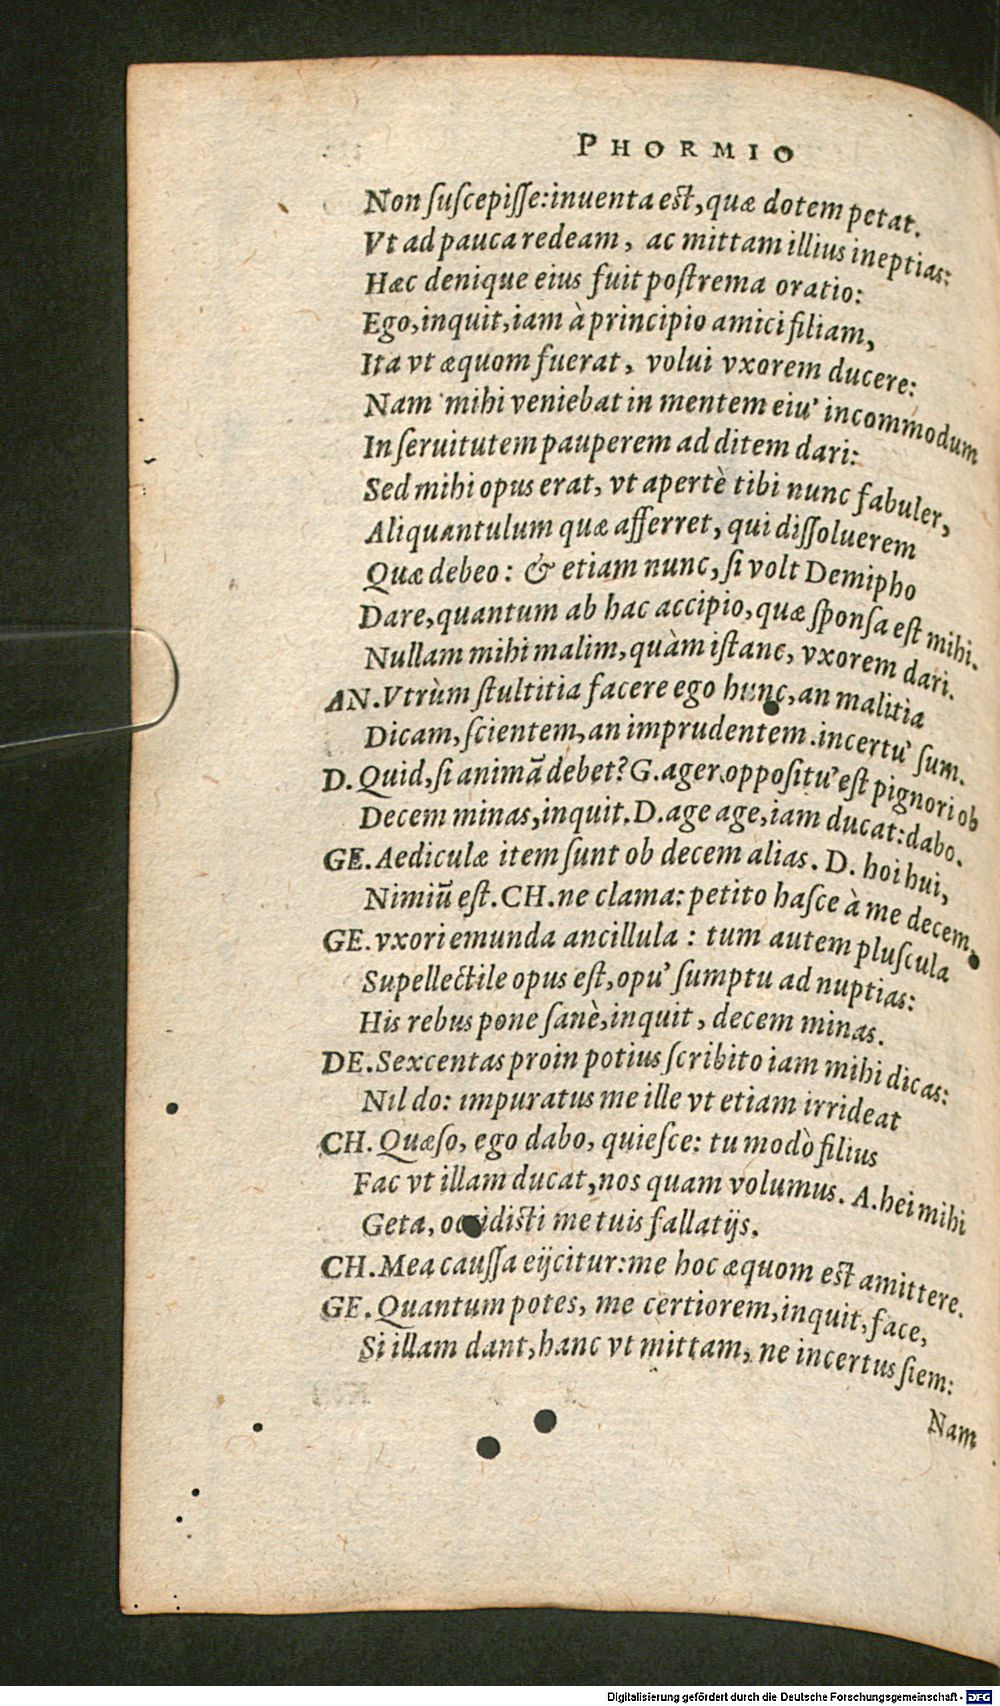 PHORMIO
Non ſuſcepiſſe: inuenta eſt, quæ dotem petat.
Vt ad pauca redeam, ac mittam illius ineptias:
Hæc denique eius fuit poſtrema oratio:
Ego, inquit, iam à principio amici filiam,
Ita vt æquom fuerat, volui vxorem ducere:
Nam mihi veniebat in mentem eiu' incommodum
In ſeruitutem pauperem ad ditem dari:
Sed mihi opus erat, vt apertè tibi nunc fabuler,
Aliquantulum quæ afferret, qui diſſoluerem
Quæ debeo: & etiam nunc, ſi volt Demipho
Dare, quantum ab hac accipio, quæ ſponſa eſt mihi.
Nullam mihi malim, quàm iſtanc, vxorem dari.
AN. Vtrùm ſtultitia facere ego hunc, an malitia
Dicam, ſcientem, an imprudentem. incertu' ſum.
D. Quid, ſi animā debet? G. ager oppoſitu' eſt pignori ob
Decem minas, inquit. D. age age, iam ducat: dabo.
GE. Aediculæ item ſunt ob decem alias. D. hoi hui,
Nimiū eſt. CH. ne clama: petito haſce à me decem.
GE. vxori emunda ancillula: tum autem pluſcula
Supellectile opus eſt, opu' ſumptu ad nuptias:
His rebus pone ſanè, inquit, decem minas.
DE. Sexcentas proin potius ſcribito iam mihi dicas:
Nil do: impuratus me ille vt etiam irrideat
CH. Quæſo, ego dabo, quieſce: tu modò filius
Fac vt illam ducat, nos quam volumus. A. hei mihi
Geta, occidiſti me tuis fallatijs.
CH. Mea cauſſa eijcitur: me hoc æquom eſt amittere.
GE. Quantum potes, me certiorem, inquit, face,
Si illam dant, hanc vt mittam, ne incertus ſiem:
Nam
Digitalisierung gefördert durch die Deutsche Forschungsgemeinschaft - DFG